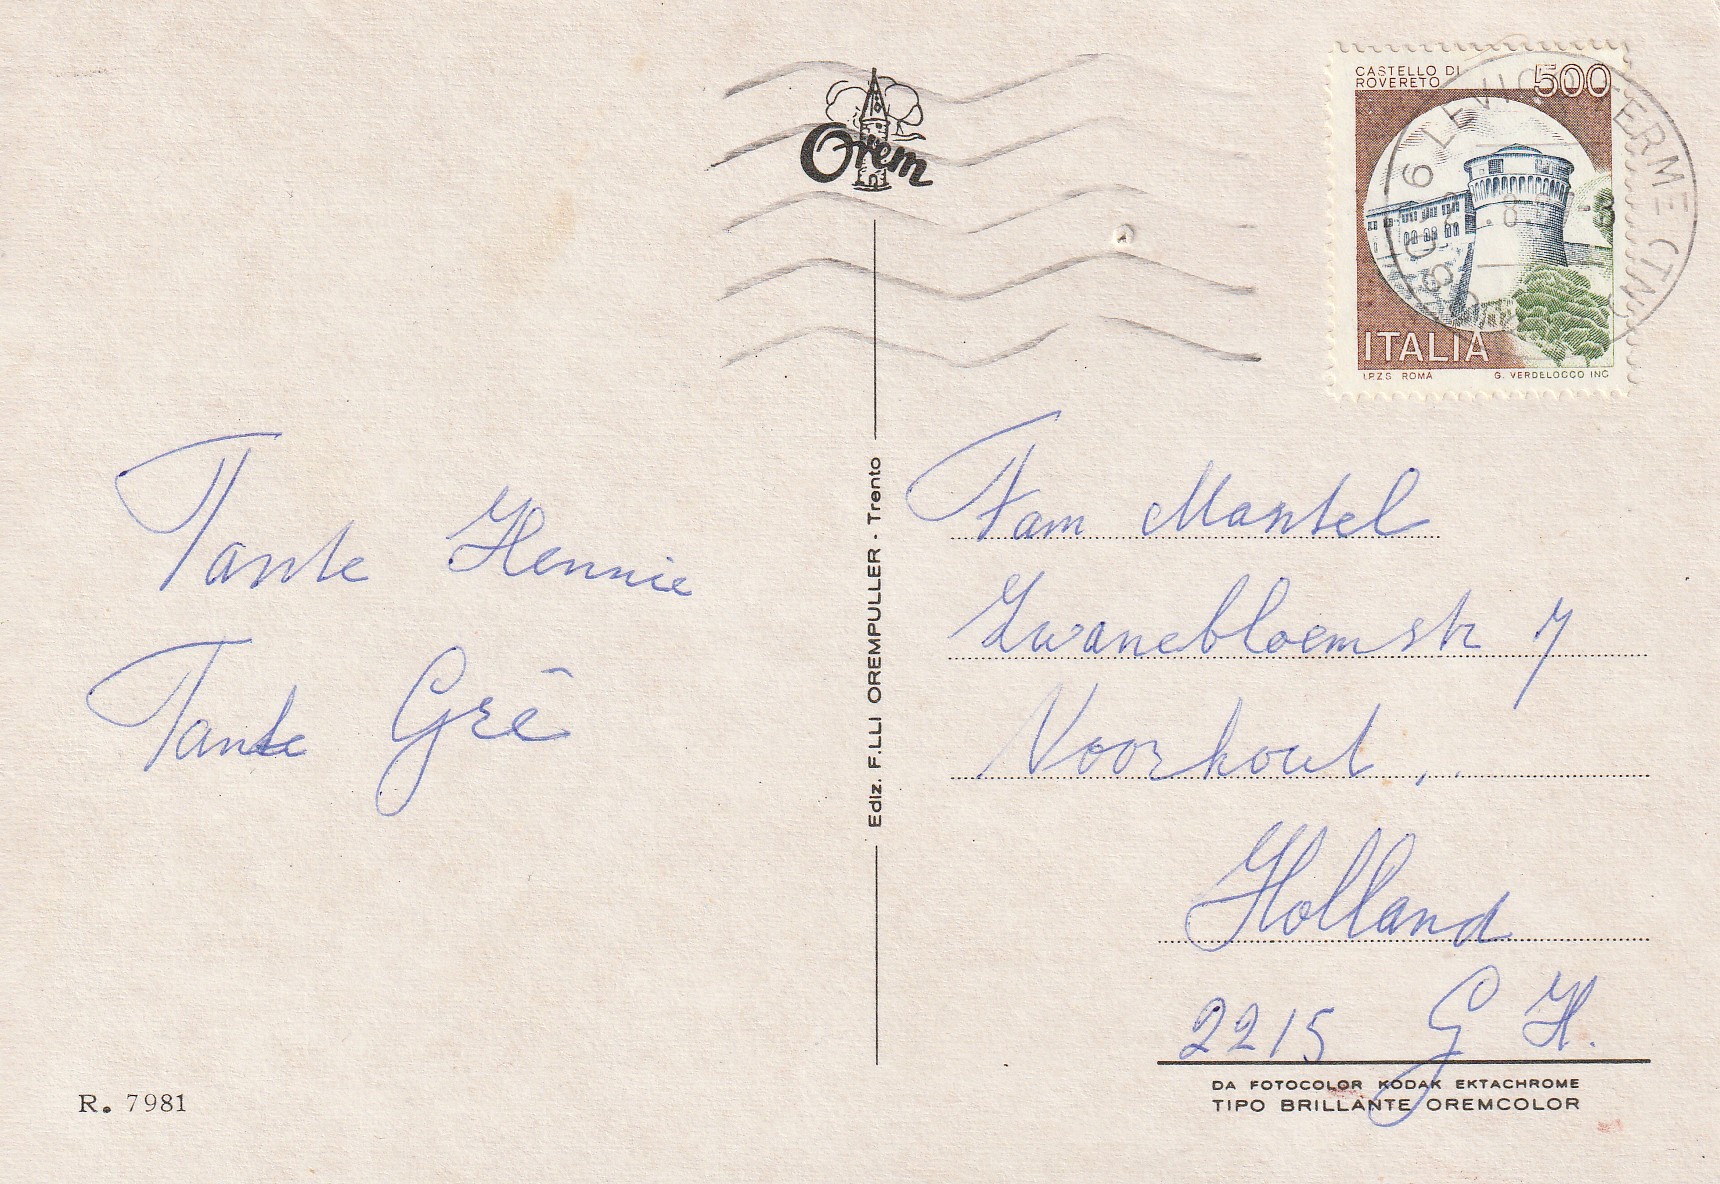 Orem
CASTELLO DI
ROVERETO
500
ITALIA
I.P.Z.S. ROMA
G. VERDELOCCO INC
LEVICO TERME (TN)
Tante Hennie
Tante Gré
Ediz. F.LLI OREMPULLER - Trento
Fam Mantel
Zwanebloemstr 7
Voorhout.
Holland
2215 G H.
DA FOTOCOLOR KODAK EKTACHROME
TIPO BRILLANTE OREMCOLOR
R. 7981